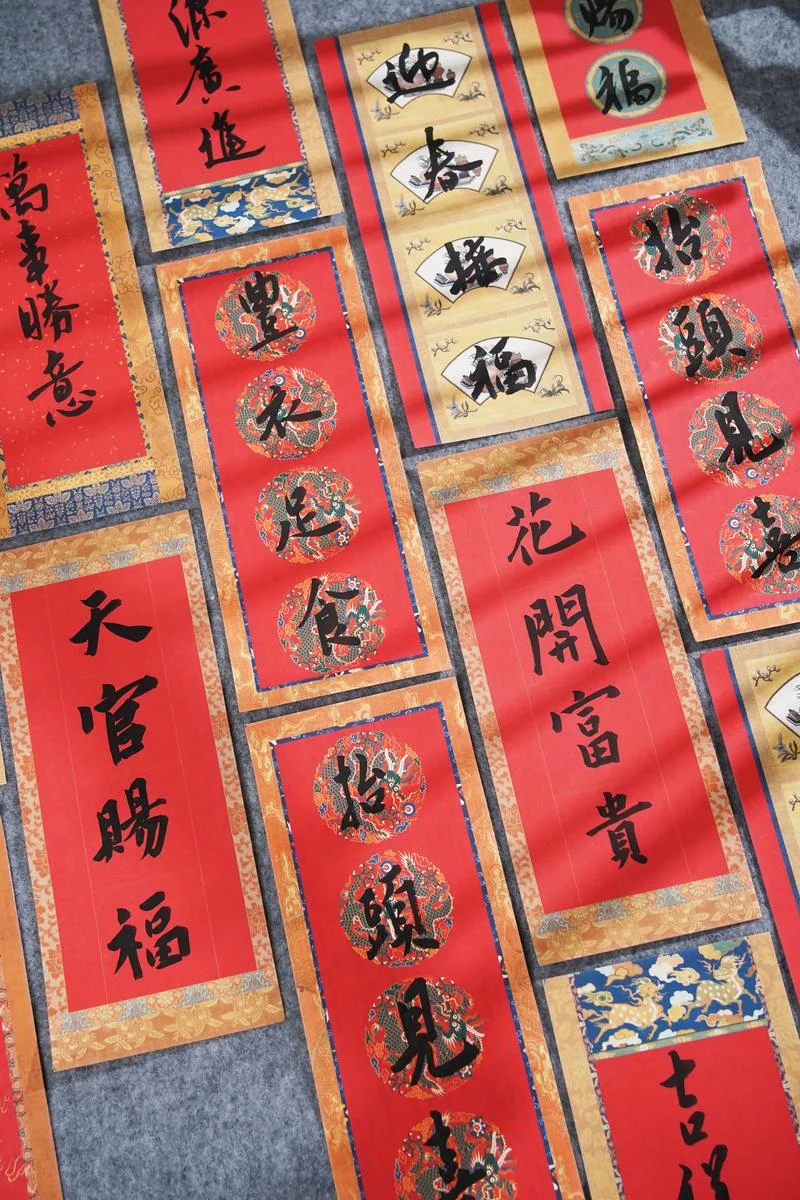 源廣進
迎春接福
賜福
萬事勝意
豐衣足食
抬頭見喜
天官賜福
花開富貴
抬頭見喜
吉